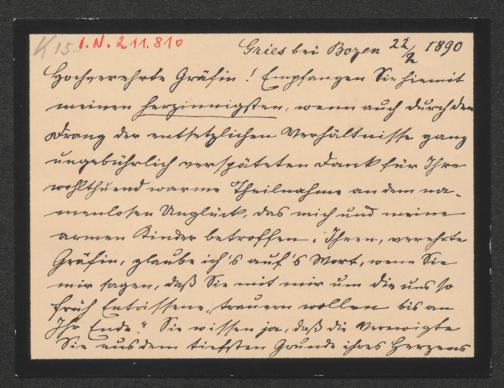 K 15 I.N. 211.810
Gries bei Bozen 22/2 1890
Hochverehrte Gräfin! Empfangen Sie hiemit
meinen herzinnigsten, wenn auch durch den
Drang der entsetzlichen Verhältnisse ganz
ungebührlich verspäteten Dank für Ihre
wohlthuend warme Theilnahme an dem na-
menlosen Unglück, das mich und meine
armen Kinder betroffen. Ihnen, verehrte
Gräfin, glaube ich's auf's Wort, wenn Sie
mir sagen, daß Sie mit mir um die uns so
früh Entrissene „trauern wollen bis an
Ihr Ende.“ Sie wissen ja, daß die Verewigte
Sie aus dem tiefsten Grunde ihres Herzens